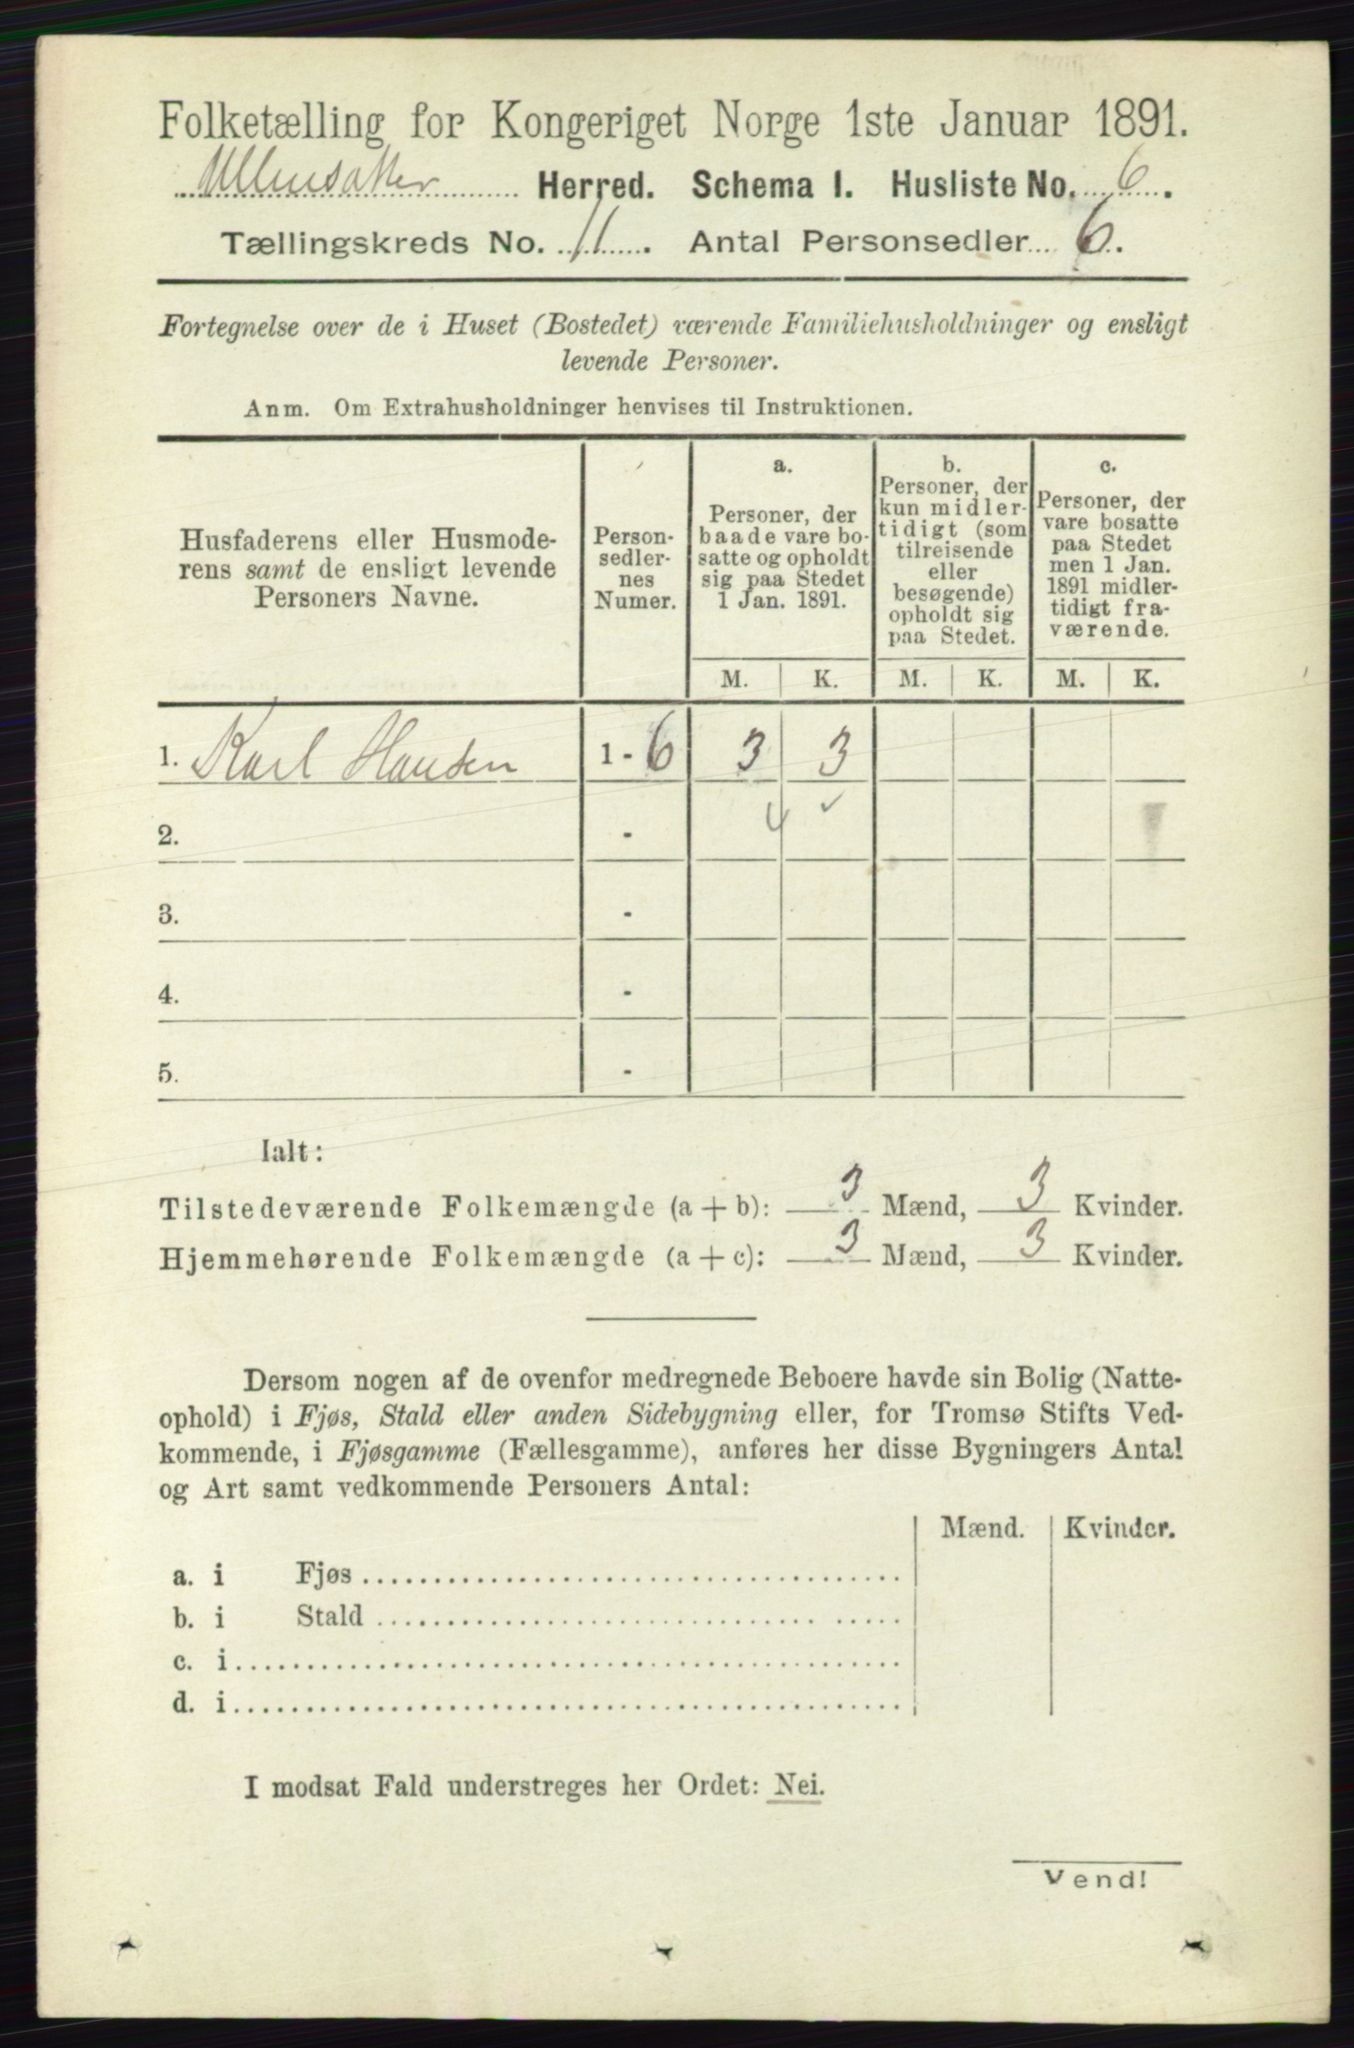 Folketælling for Kongeriget Norge 1ste Januar 1891.
Ullensaker Herred. Schema I. Husliste No. 6.
Tællingskreds No. 11. Antal Personsedler 6.
Fortegnelse over de i Huset (Bostedet) værende Familiehusholdninger og ensligt
levende Personer.
Anm. Om Extrahusholdninger henvises til Instruktionen.
Husfaderens eller Husmode-
rens samt de ensligt levende
Personers Navne.
Person-
sedler-
nes
Numer.
a.
Personer, der
baade vare bo-
satte og opholdt
sig paa Stedet
1 Jan. 1891.
b.
Personer, der
kun midler-
tidigt (som
tilreisende
eller
besøgende)
opholdt sig
paa Stedet.
c.
Personer, der
vare bosatte
paa Stedet
men 1 Jan.
1891 midler-
tidigt fra-
værende.
M. K. M. K. M. K.
1. Karl Hansen 1 - 6 3 3
2. - 4 ✓
3. -
4. -
5. -
Ialt:
Tilstedeværende Folkemængde (a + b): 3 Mænd, 3 Kvinder.
Hjemmehørende Folkemængde (a + c): 3 Mænd, 3 Kvinder.
Dersom nogen af de ovenfor medregnede Beboere havde sin Bolig (Natte-
ophold) i Fjøs, Stald eller anden Sidebygning eller, for Tromsø Stifts Ved-
kommende, i Fjøsgamme (Fællesgamme), anføres her disse Bygningers Antal
og Art samt vedkommende Personers Antal:
Mænd. Kvinder.
a. i Fjøs
b. i Stald
c. i
d. i
I modsat Fald understreges her Ordet: Nei.
Vend!